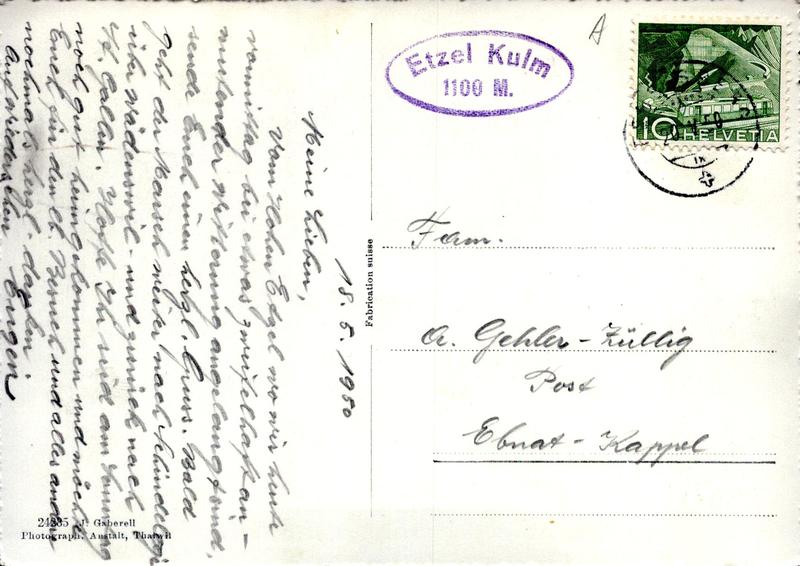 Etzel Kulm
1100 M.
A
10 HELVETIA
18. 5. 1950
Meine Lieben,
Vom Hohen Etzel wo wir heute
vormittag bei etwas zweifelhaft an-
mutender Witterung angelangt sind,
sende Euch einen herzl. Gruss. Bald
geht der Marsch weiter nach Schindellegi
Wädenswil - und zurück nach
St. Gallen. Hoffe Ihr seid am Sonntag
noch gut heimgekommen und möchte
Euch für den lb. Besuch und alles andere
nochmals herzl. danken.
Auf Wiedersehen Eugen
Fabrication suisse
Fam.
A. Gehler-Züllig
Post
Ebnat-Kappel
24335 J. Gaberell
Photograph. Anstalt, Thalwil